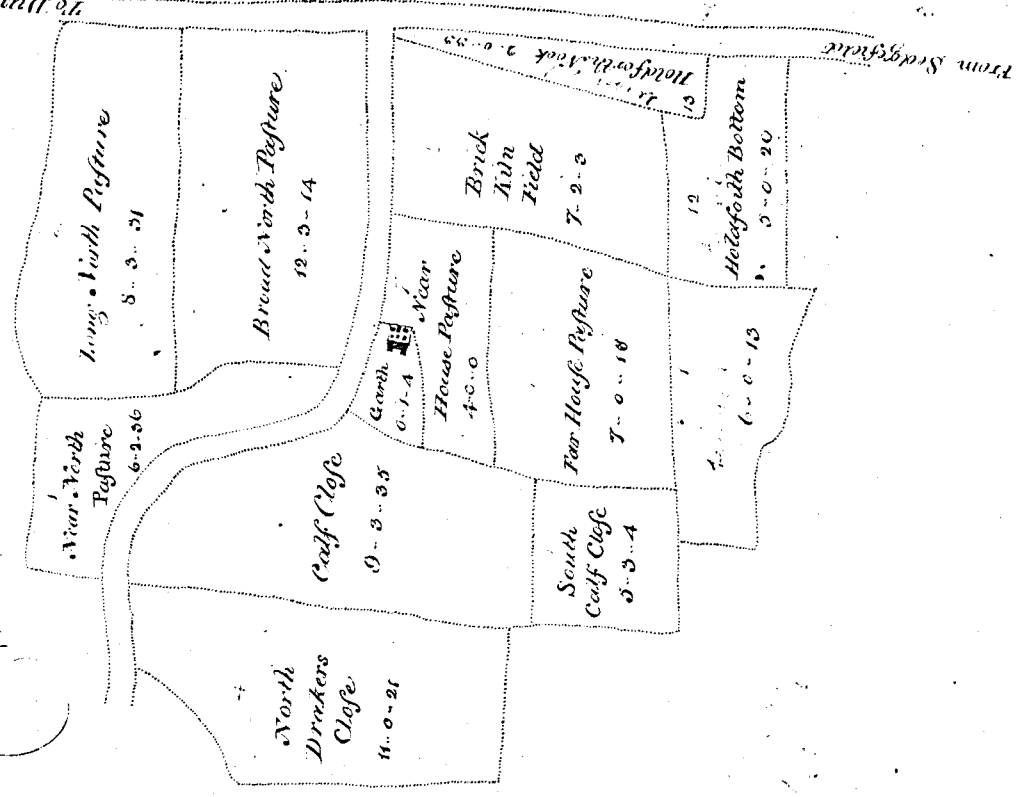 From Sedgefield
Long North Pasture
8..3..31
Broad North Pasture
12..3-14
Holdforth Nook 2-0-33
13
Brick
Kiln
Field
7-2-3
12
Holdforth Bottom
5-0-20
Near
House Pasture
4-0-0
Garth
0-1-4
Far House Pasture
7-0-18
6-0-13
Near North
Pasture
6-2-36
Calf Close
9-3-35
South
Calf Close
5-3-4
North
Drakers
Close
11-0-21